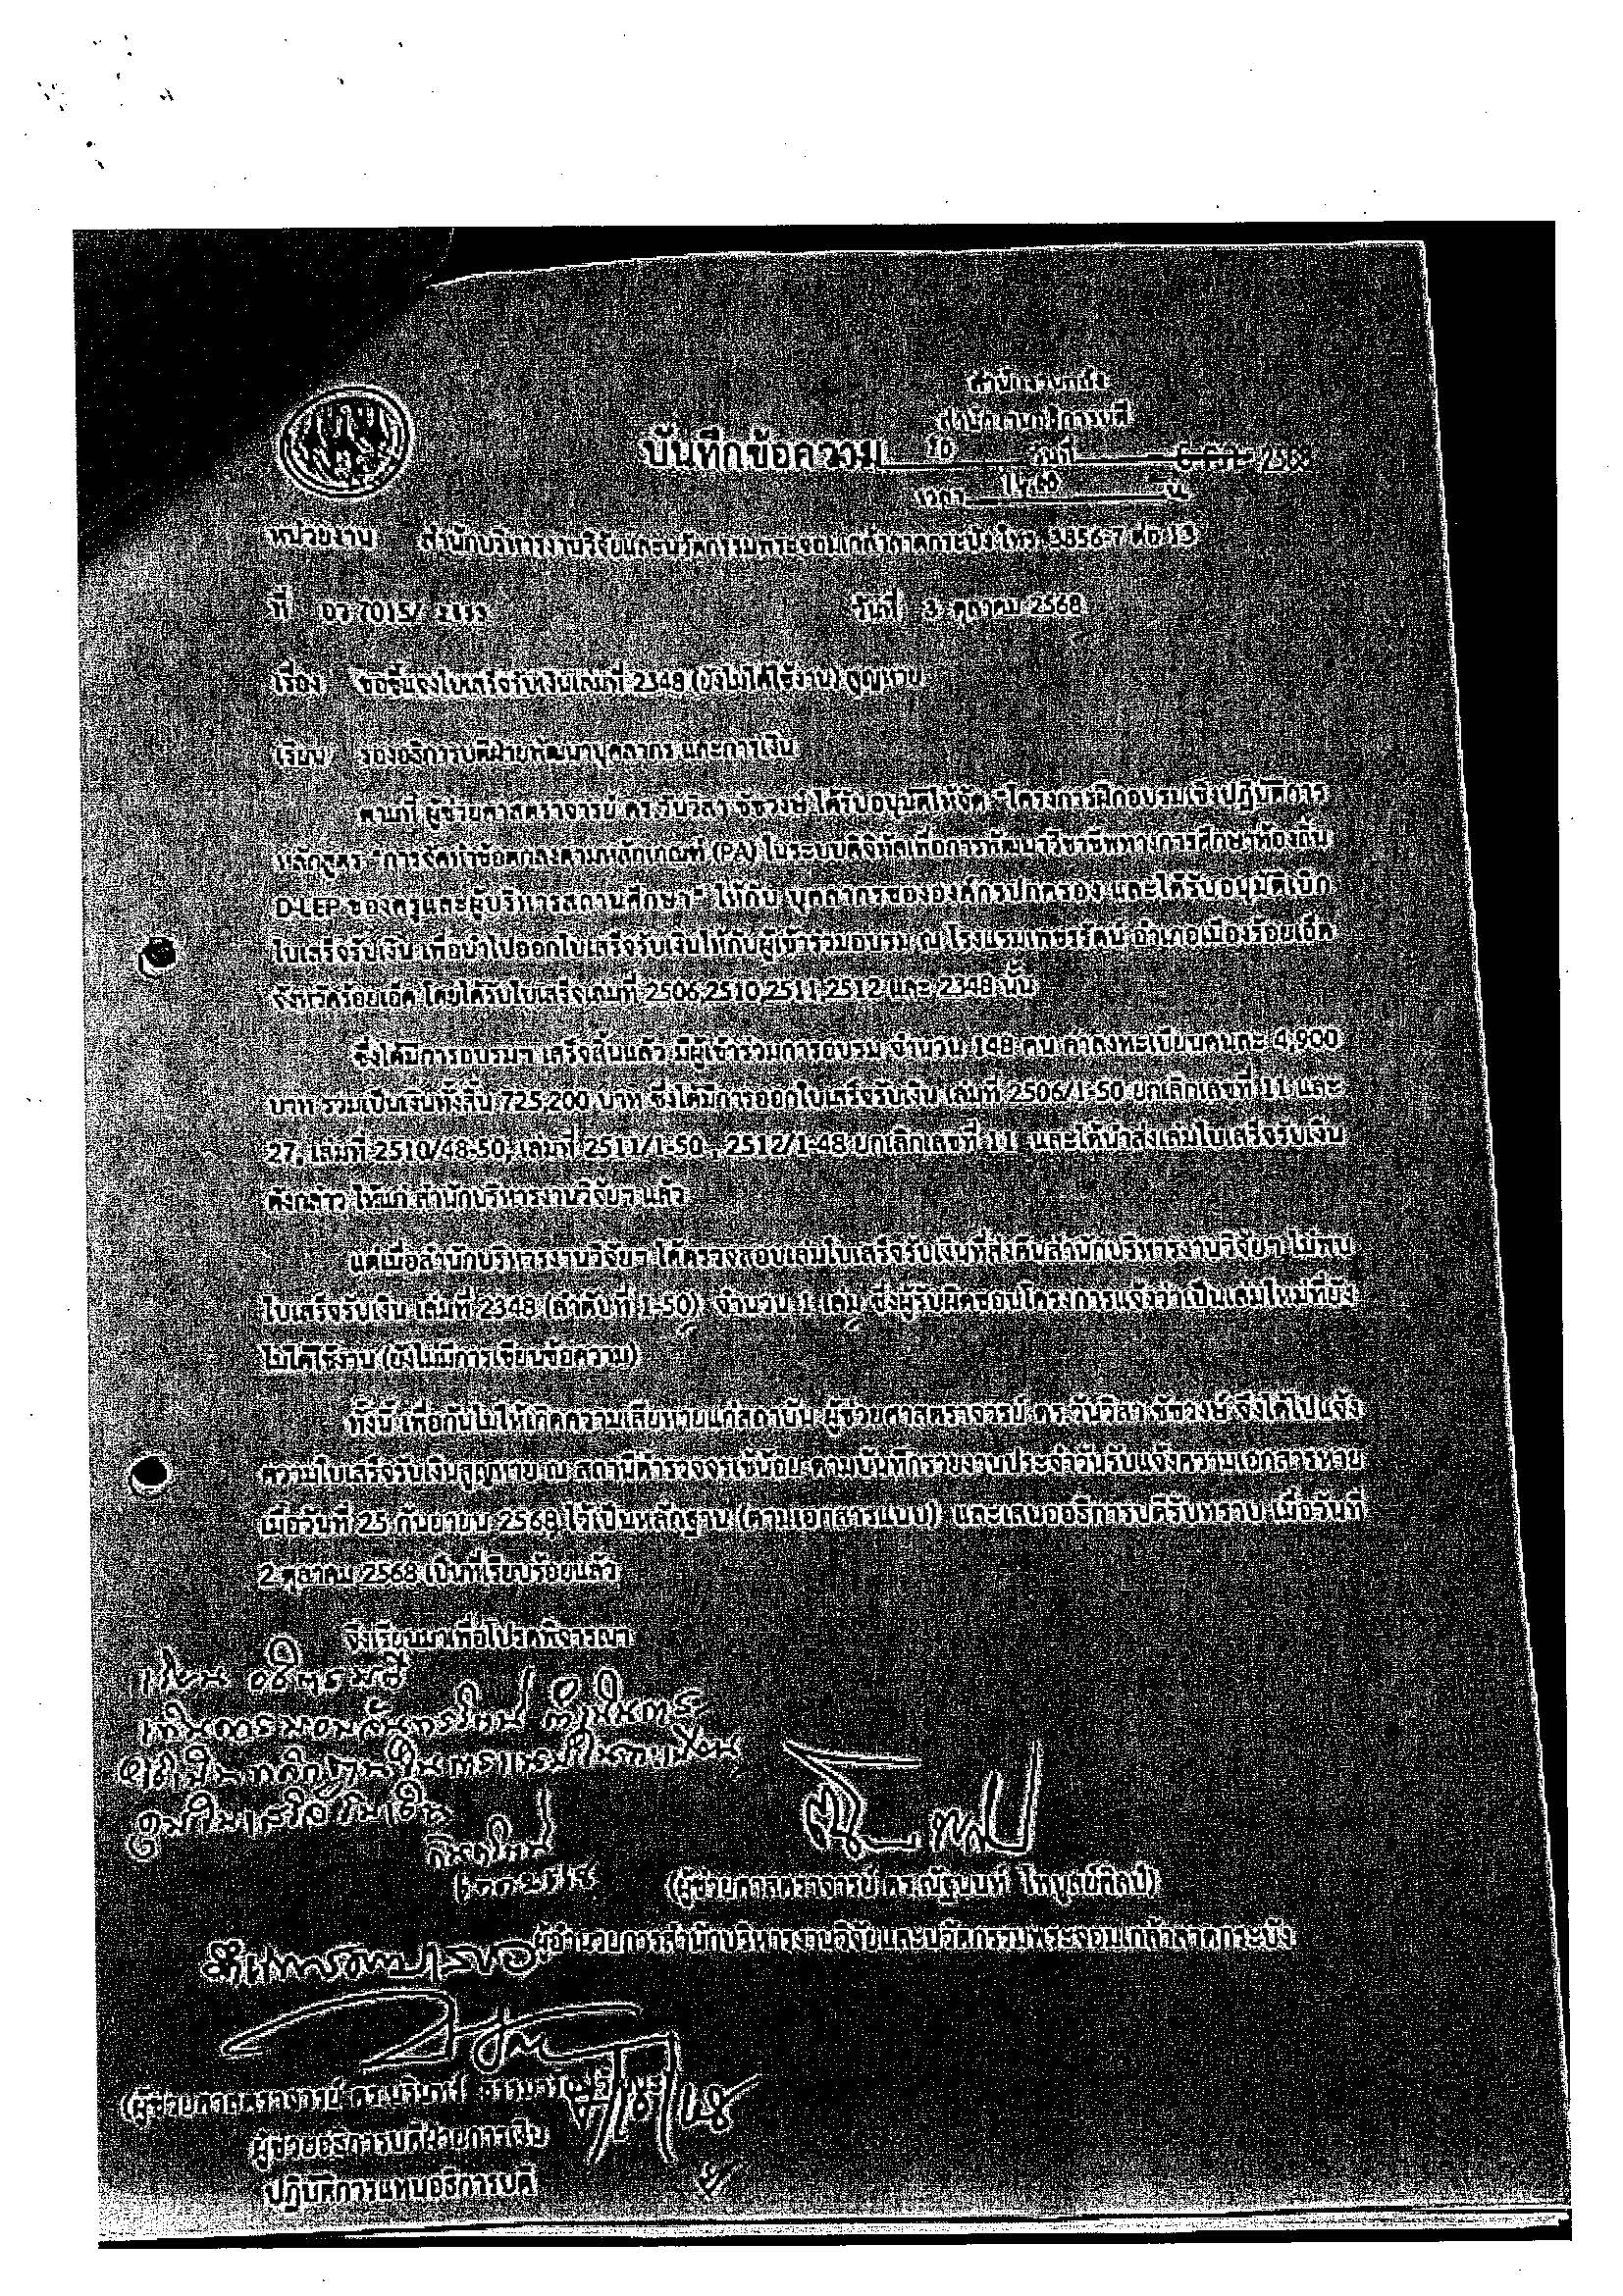 สำนักงานคลัง
สำนักงานอธิการบดี
บันทึกข้อความ 10 วันที่ 2568
เวลา น.
หน่วยงาน สำนักบริหารงานวิจัยและนวัตกรรมพระจอมเกล้าลาดกระบัง โทร. 3856-7 ต่อ 13
ที่ อว 7015/ วันที่ 3 ตุลาคม 2568
เรื่อง ขอชี้แจงใบเสร็จรับเงินเล่มที่ 2348 (ยังไม่ได้ใช้งาน) สูญหาย
เรียน รองอธิการบดีฝ่ายพัฒนาบุคลากร และการเงิน
ตามที่ ผู้ช่วยศาสตราจารย์ ดร.วันวิสา ชัชวงษ์ ได้รับอนุมัติให้จัด "โครงการฝึกอบรมเชิงปฏิบัติการ
หลักสูตร "การจัดทำข้อตกลงตามหลักเกณฑ์ (PA) ในระบบดิจิทัลเพื่อการพัฒนาวิชาชีพทางการศึกษาท้องถิ่น
D-LEP ของครูและผู้บริหารสถานศึกษา" ให้กับ บุคลากรขององค์กรปกครอง และได้รับอนุมัติเบิก
ใบเสร็จรับเงิน เพื่อนำไปออกใบเสร็จรับเงินให้กับผู้เข้าร่วมอบรม ณ โรงแรมเพชรรัตน์ อำเภอเมืองร้อยเอ็ด
จังหวัดร้อยเอ็ด โดยได้รับใบเสร็จเล่มที่ 2506,2510,2511,2512 และ 2348 นั้น
ซึ่งได้มีการอบรมฯ เสร็จสิ้นแล้ว มีผู้เข้าร่วมการอบรม จำนวน 148 คน ค่าลงทะเบียนคนละ 4,900
บาท รวมเป็นเงินทั้งสิ้น 725,200 บาท ซึ่งได้มีการออกใบเสร็จรับเงิน เล่มที่ 2506/1-50 ยกเลิกเลขที่ 11 และ
27, เล่มที่ 2510/48-50, เล่มที่ 2511/1-50 , 2512/1-48 ยกเลิกเลขที่ 11 และได้นำส่งเล่มใบเสร็จรับเงิน
ดังกล่าว ให้แก่ สำนักบริหารงานวิจัยฯ แล้ว
แต่เมื่อสำนักบริหารงานวิจัยฯ ได้ตรวจสอบเล่มใบเสร็จรับเงินที่ส่งคืนสำนักบริหารงานวิจัยฯ ไม่พบ
ใบเสร็จรับเงิน เล่มที่ 2348 (ลำดับที่ 1-50) จำนวน 1 เล่ม ซึ่งผู้รับผิดชอบโครงการแจ้งว่าเป็นเล่มใหม่ที่ยัง
ไม่ได้ใช้งาน (ยังไม่มีการเขียนข้อความ)
ทั้งนี้ เพื่อกันไม่ให้เกิดความเสียหายแก่สถาบัน ผู้ช่วยศาสตราจารย์ ดร.วันวิสา ชัชวงษ์ จึงได้ไปแจ้ง
ความใบเสร็จรับเงินสูญหาย ณ สถานีตำรวจจรเข้น้อย ตามบันทึกรายงานประจำวันรับแจ้งความเอกสารหาย
เมื่อวันที่ 25 กันยายน 2568 ไว้เป็นหลักฐาน (ตามเอกสารแนบ) และเสนออธิการบดีรับทราบ เมื่อวันที่
2 ตุลาคม 2568 เป็นที่เรียบร้อยแล้ว
จึงเรียนมาเพื่อโปรดพิจารณา
เรียน อธิการบดี
(ผู้ช่วยศาสตราจารย์ ดร.ณัฐนนท์ ไพบูลย์ศิลป์)
ผู้อำนวยการสำนักบริหารงานวิจัยและนวัตกรรมพระจอมเกล้าลาดกระบัง
(ผู้ช่วยศาสตราจารย์ ดร.
ผู้ช่วยอธิการบดีฝ่ายการเงิน
ปฏิบัติการแทนอธิการบดี